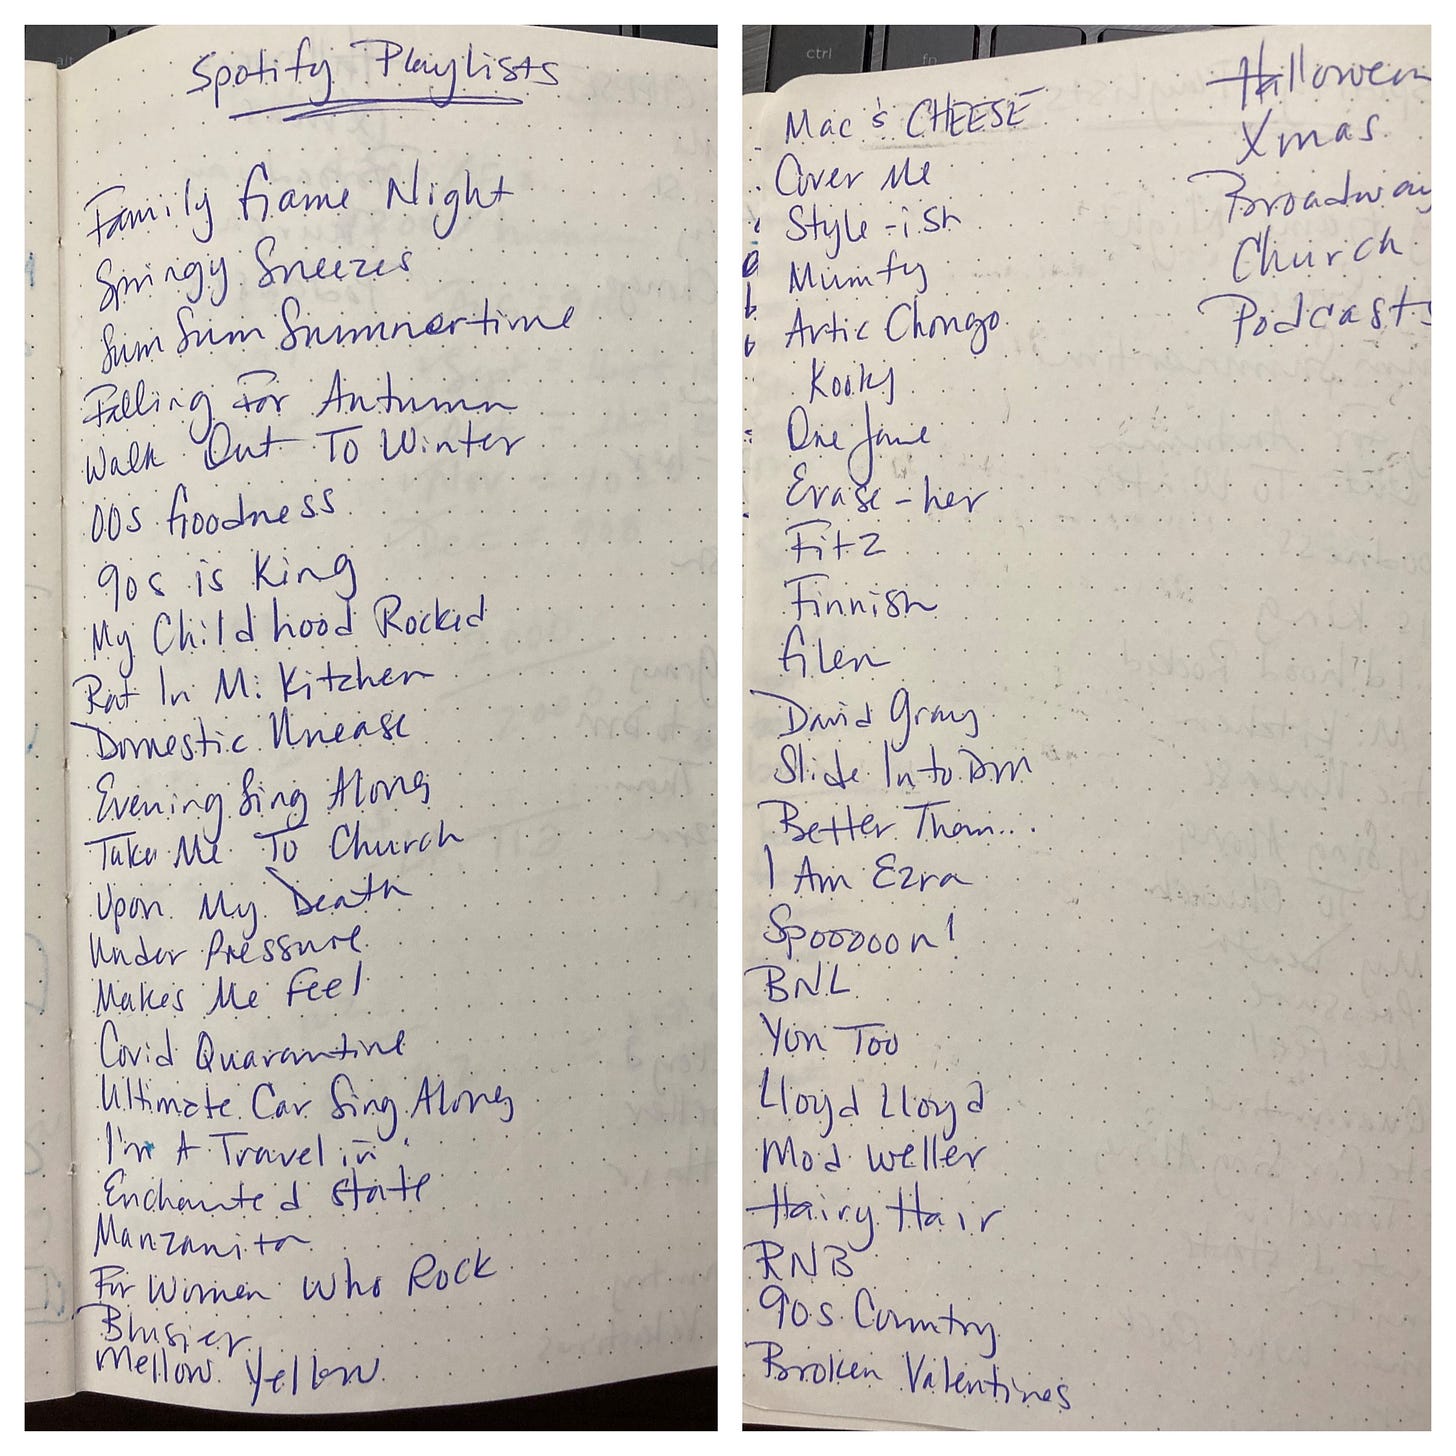 Spotify Playlists
Family Game Night
Springy Sneezes
Sum Sum Summertime
Falling For Autumn
Walk Out To Winter
00s Goodness
90s is King
My Childhood Rocked
Rat In Mi Kitchen
Domestic Unease
Evening Sing Along
Take Me To Church
Upon My Death
Under Pressure
Makes Me Feel
Covid Quarantine
Ultimate Car Sing Along
I'm A Travelin'
Enchanted State
Manzanita
For Women Who Rock
Blusier
Mellow Yellow
Mac's CHEESE
Cover Me
Style-ish
Mumfy
Artic Chongo
Kooky
One Jame
Erase-her
Fitz
Finnish
Glen
David Gray
Slide Into Dm
Better Than...
I Am Ezra
Spooooon!
BNL
You Too
Lloyd Lloyd
Mod Weller
Hairy Hair
RNB
90s Country
Broken Valentines
Halloween
Xmas
Broadway
Church
Podcasts
ctrl
fn
alt